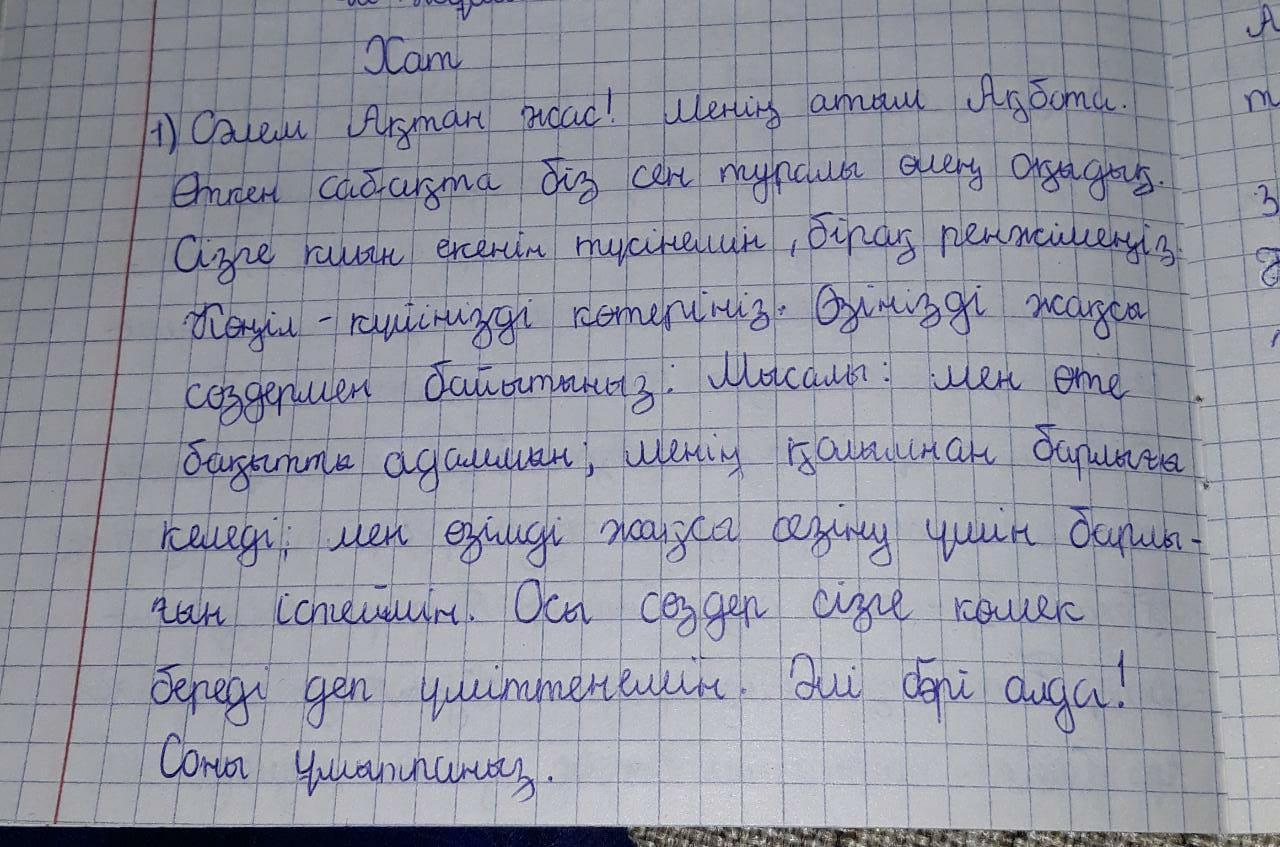 Хат
1) Сәлем Ақтан жас! Менің атым Ақбота.
Өткен сабақта біз сен туралы өлең оқыдық.
Сізге қиын екенін түсінемін, бірақ ренжімеңіз.
Көңіл-күйінізді көтеріңіз. Өзінізді жақсы
сөздермен байытыныз: Мысалы: мен өте
бақытты адаммын; менің қолымнан барлығы
келеді; мен өзімді жақсы сезіну үшін барлы-
ғын істеймін. Осы сөздер сізге көмек
береді деп үміттенемін. Әлі бәрі алда!
Соны ұмытпаныз.